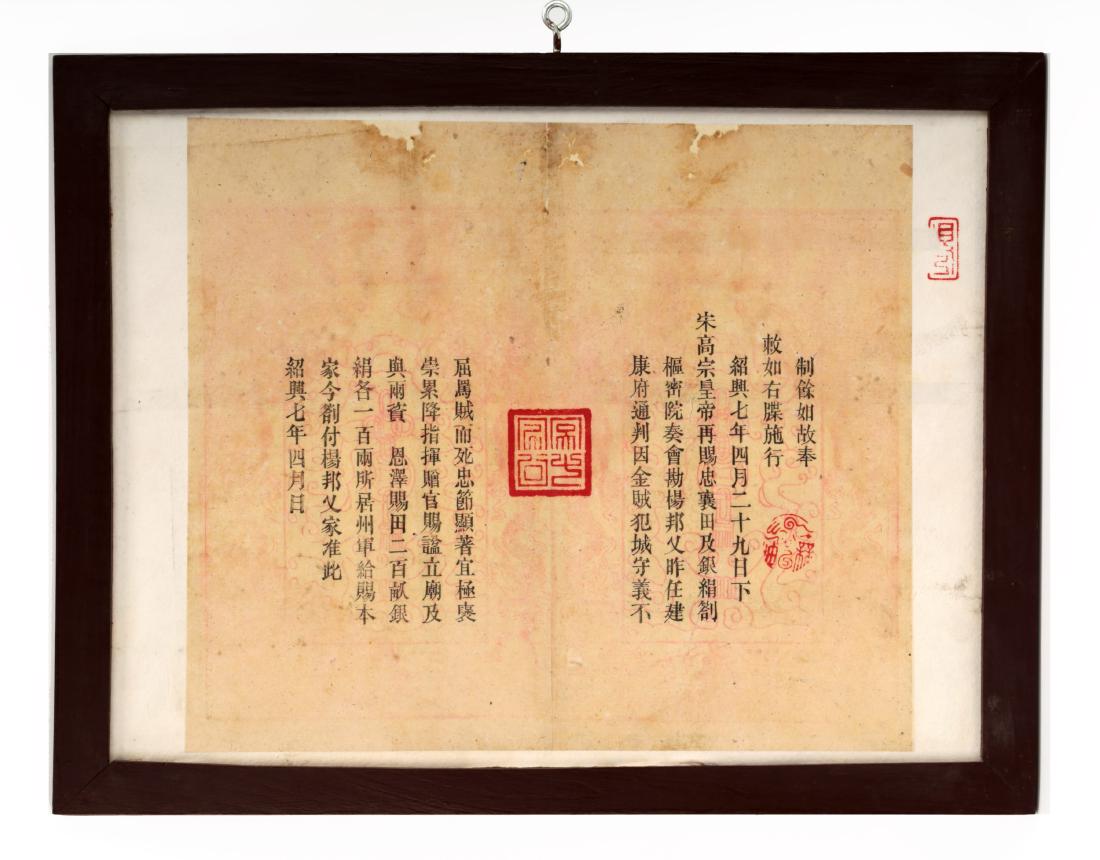 制餘如故奉
敕如右牒施行
紹興七年四月二十九日下
宋高宗皇帝再賜忠襄田及銀絹劄
樞密院奏會勘楊邦乂昨任建
康府通判因金賊犯城守義不
屈罵賊而死忠節顯著宜極褒
崇累降指揮贈官賜謚立廟及
與兩資 恩澤賜田二百畝銀
絹各一百兩所居州軍給賜本
家今劄付楊邦乂家准此
紹興七年四月日